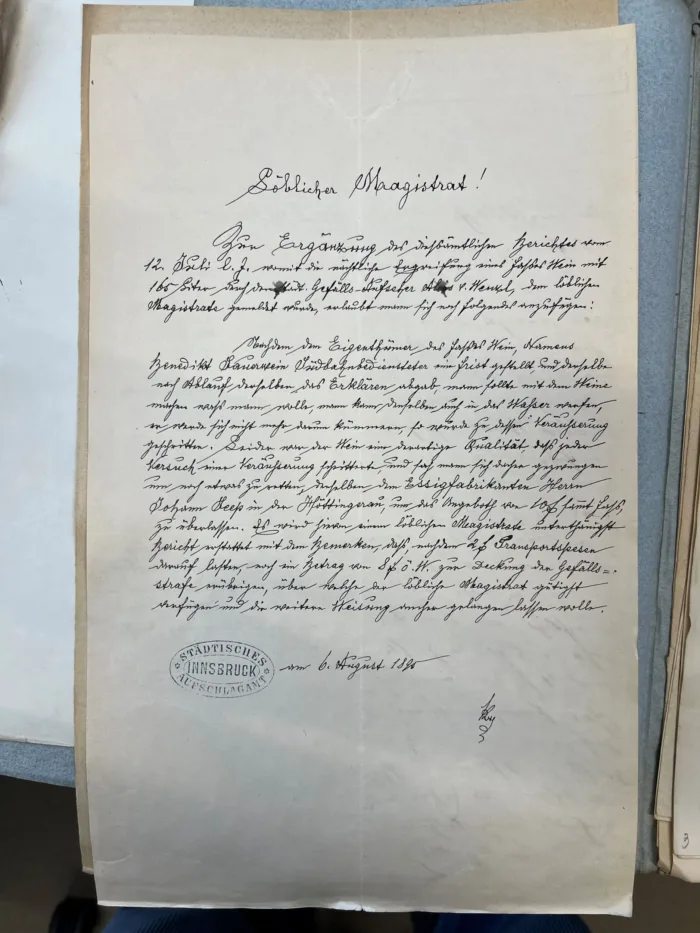 Löblicher Magistrat!
Zur Ergänzung des diesämtlichen Berichtes vom
12. Juli l. J. womit die nächtliche Ergreifung eines Fasses Wein mit
165 Liter durch den städt. Gefälls-Aufseher v. Wenzl, dem löblichen
Magistrate gemeldet wurde, erlaubt man sich noch folgendes anzufügen:
Nachdem dem Eigenthümer des Fasses Wein, Namens
Benedikt Sauerwein Südbahnbediensteter ein Frist gestellt und derselbe
nach Ablauf derselben das Erklären abgab, mann sollte mit dem Weine
machen wass mann wolle, mann kann denselben auch in das Wasser werfen,
er werde sich nicht mehr darum kümmern, so würde zu dessen Veräusserung
geschritten. Leider war der Wein ein derartige Qualität, dass jeder
Versuch einer Veräusserung scheiterte, und sah mann sich daher gezwungen
um noch etwas zu retten, denselben dem Essigfabrikanten Herrn
Johann Seep in der Höttingerau, um das Angeboth von 10 f sammt Fass,
zu überlassen. Es wird hievon einem löblichen Magistrate unterthänigst
Bericht erstattet mit dem Bemerken, dass, nachdem 2 f Transportspesen
darauf lasten, noch ein Betrag von 8 f ö. W. zur Deckung der Gefälls=
strafe erübrigen, über welche der löbliche Magistrat gütigst
verfügen und die weitere Weisung anher gelangen lassen wolle.
STÄDTISCHES
INNSBRUCK am 6. August 1895
AUFSCHLAGAMT